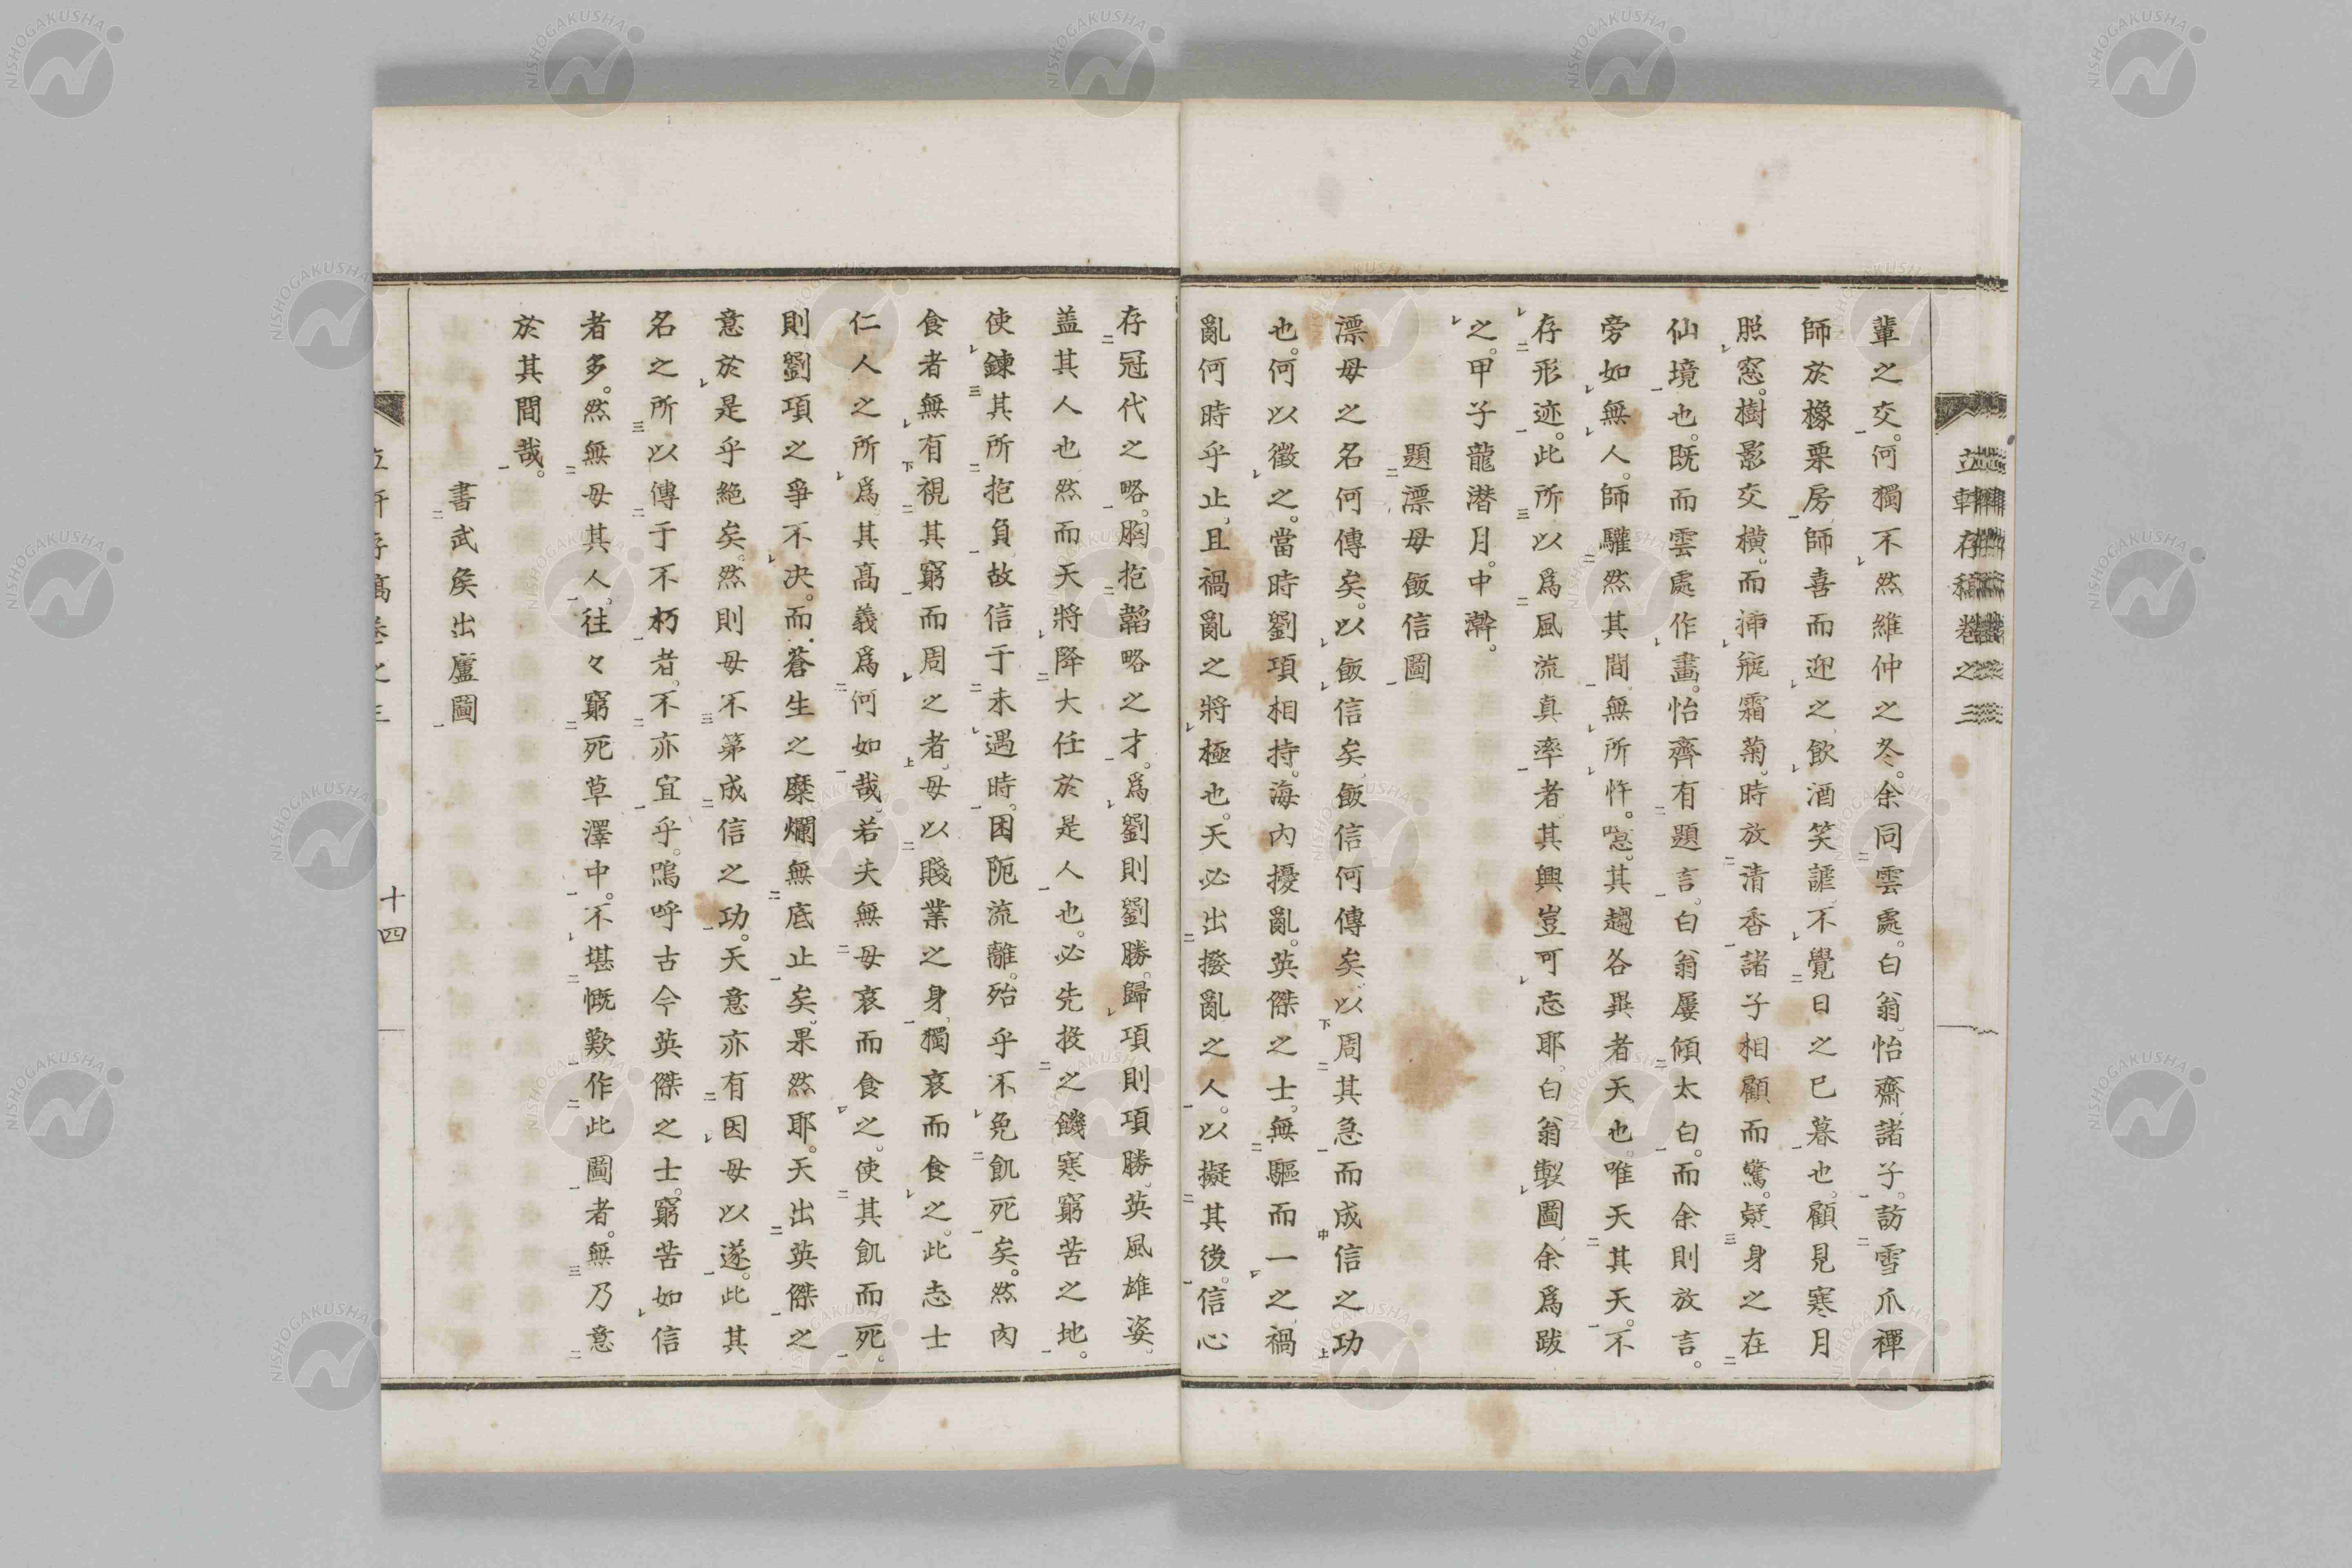 立軒存稿卷之三
輩之交。何獨不然維仲之冬。余同雲處。白翁。怡齋諸子。訪雪爪禪
師於橡栗房。師喜而迎之、飲酒笑謔、不覺日之已暮也。顧見寒月
照窓。樹影交横。而挿瓶霜菊。時放清香諸子相顧而驚。疑身之在
仙境也。既而雲處作畫。怡齊有題言。白翁屢傾太白。而余則放言。
旁如無人。師驩然其間無所忤。噫。其趨各異者天也。唯天其天。不
存形迹。此所以爲風流真率者、其興豈可忘耶、白翁製圖、余爲跋
之。甲子龍潜月。中澣。
題漂母飯信圖
漂母之名何傳矣。以飯信矣、飯信何傳矣、以周其急而成信之功
也。何以徵之。當時劉項相持。海内擾亂。英傑之士、無驅而一之、禍
亂何時乎止、且禍亂之將極也。天必出撥亂之人。以擬其後。信心
存冠代之略。胸抱韜略之才。爲劉則劉勝。歸項則項勝。英風雄姿、
盖其人也然而天將降大任於是人也。必先投之饑寒窮苦之地。
使鍊其所抱負。故信于未遇時。困阨流離。殆乎不免飢死矣。然肉
食者無有視其窮而周之者。母以賤業之身、獨哀而食之。此志士
仁人之所爲、其高義爲何如哉。若夫無母哀而食之。使其飢而死。
則劉項之爭不决。而蒼生之糜爛無底止矣。果然耶。天出英傑之
意於是乎絶矣。然則母不第成信之功。天意亦有因母以遂。此其
名之所以傳于不朽者。不亦宜乎。嗚呼古今英傑之士。窮苦如信
者多。然無母其人。往々窮死草澤中。不堪慨歎作此圖者。無乃意
於其間哉。
書武矦出廬圖
十四